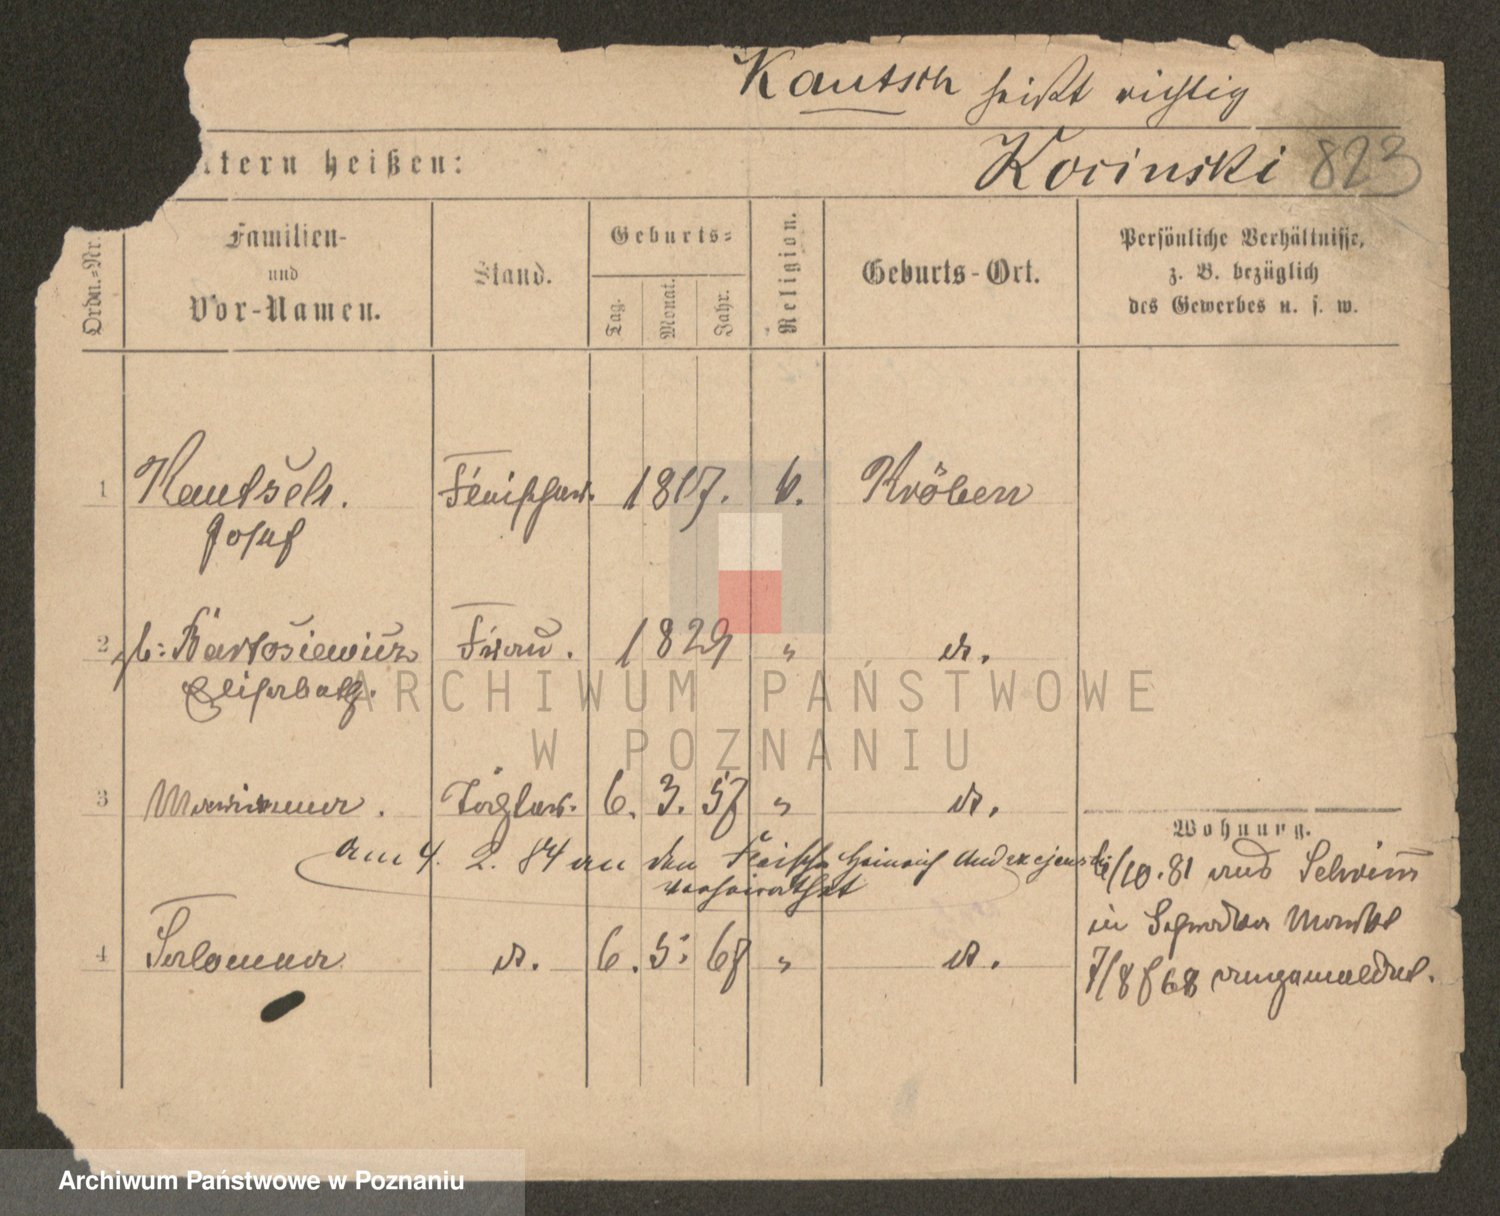 Kautsch heißt richtig
ltern heißen:
Kocinski 823
Ordn.-Nr.
Familien-
und
Vor-Namen.
Stand.
Geburts-
Tag.
Monat.
Jahr.
Religion.
Geburts-Ort.
Persönliche Verhältnisse,
z. B. bezüglich
des Gewerbes u. s. w.
1 Kautsch. Fleischer. 1817. k. Kröben
Josef
2 gb: Bartosiewicz Frau. 1829 " do.
Elisabeth.
3 Marianna. 6. 3. 57 " do.
Wohnung.
am 4. 2. 84 an den Fleisch. Heinrich Andrzejewski
verheirathet
/10.81 aus Schrimm
in
4 Salomea do. 6. 5. 68 " do.
7/8 68 angemeldet.
ARCHIWUM PAŃSTWOWE
W POZNANIU
Archiwum Państwowe w Poznaniu